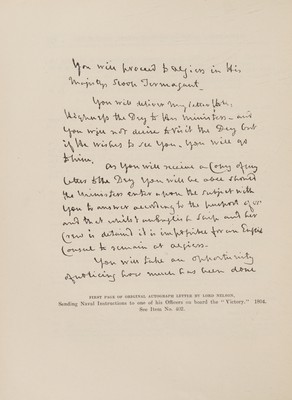 You will proceed to Algiers in His
Majestys Sloop Termagant.
You will deliver my letter for
Highness the Dey to his Ministers — and
You will not desire to visit the Dey but
if He wishes to see you. You will go
to him,
As you will receive a Copy of my
letter to the Dey You will be able should
the Ministers enter upon the subject with
You to answer according to the purport of it
and that whilst an English Ship and her
Crew is detained it is impossible for an English
Consul to remain at Algiers.
You will take an opportunity
of noticing how much has been done
FIRST PAGE OF ORIGINAL AUTOGRAPH LETTER BY LORD NELSON,
Sending Naval Instructions to one of his Officers on board the "Victory." 1804.
See Item No. 402.